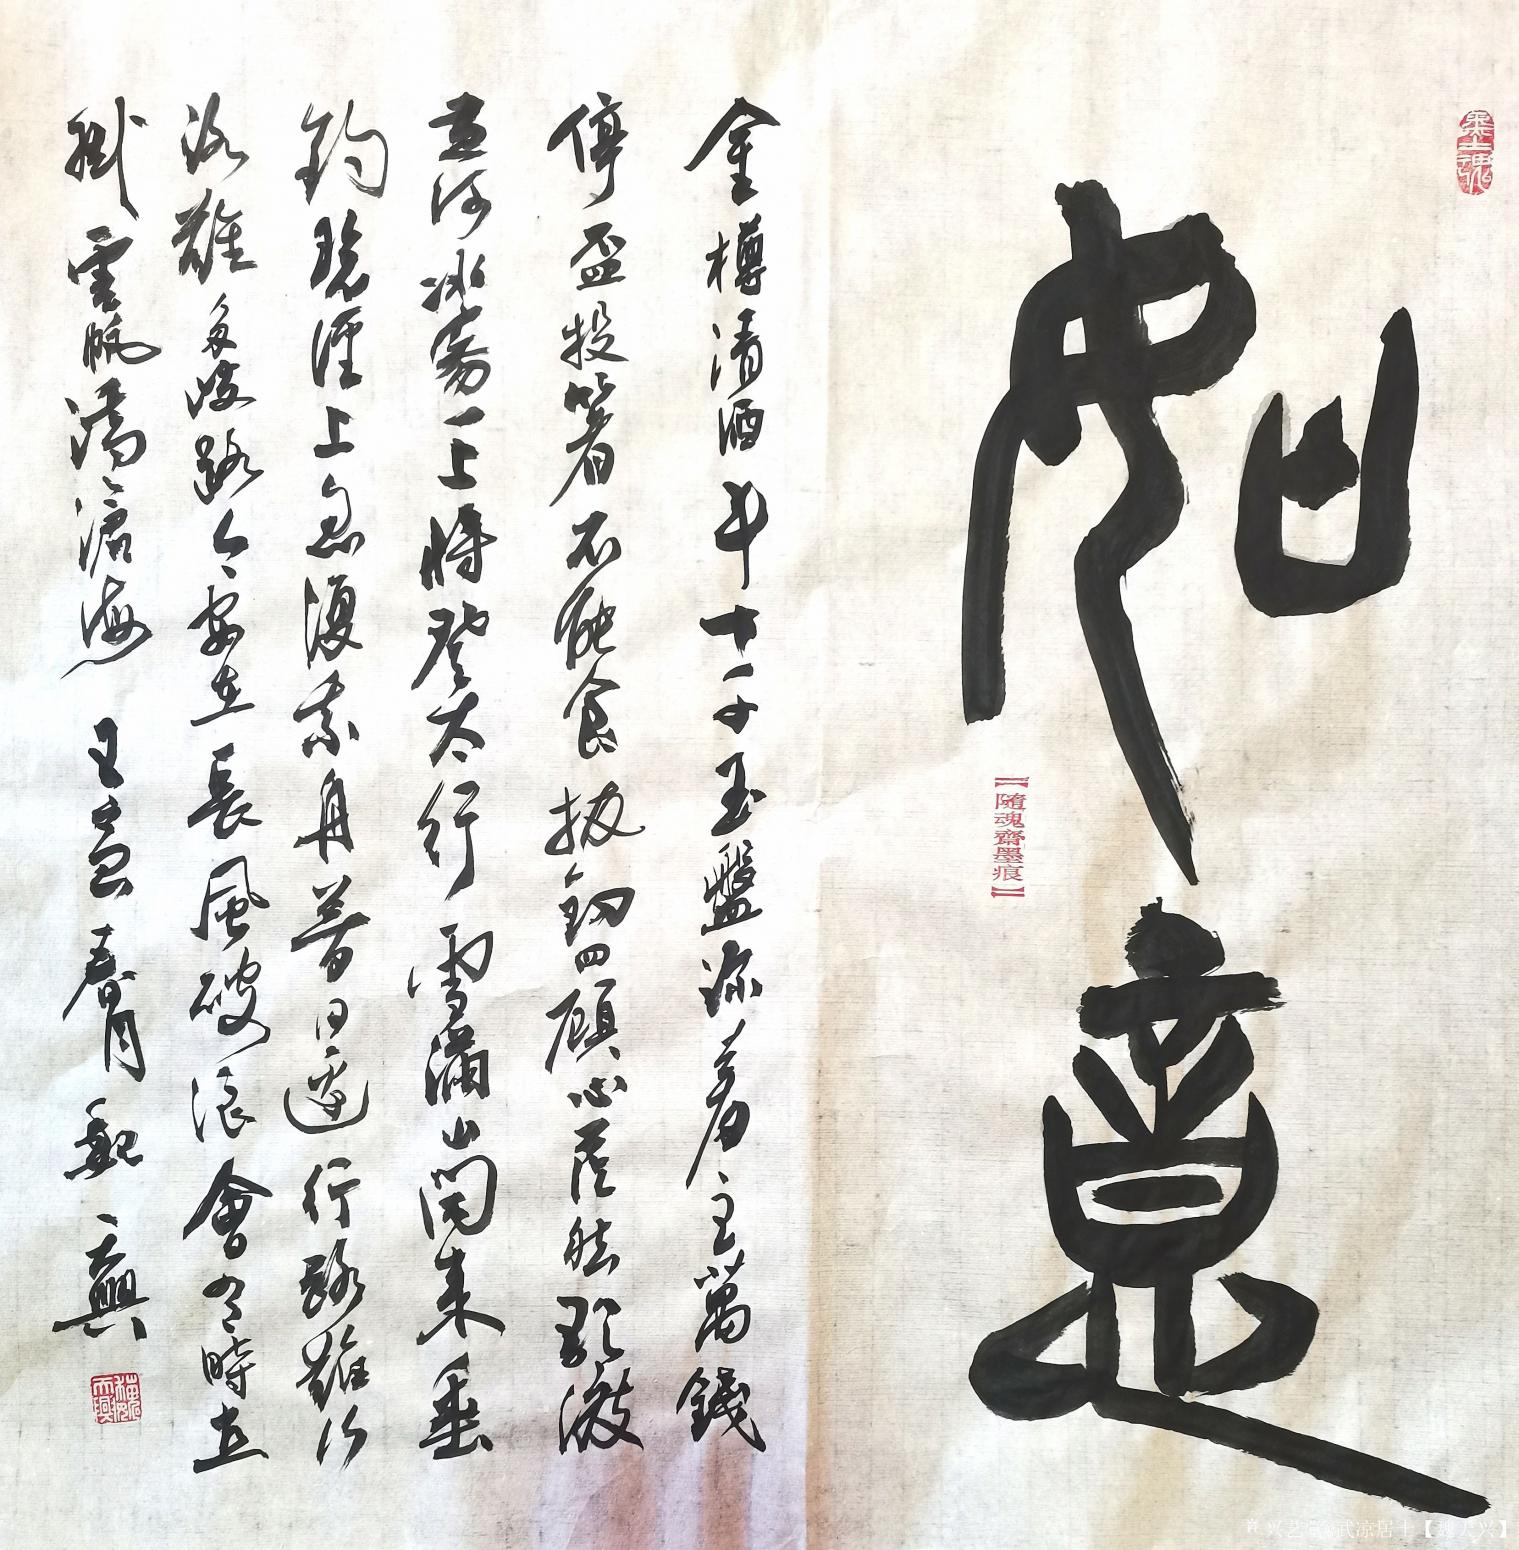 如意
【隨魂齋墨痕】
金樽清酒斗十千玉盤珎羞主萬錢
停盃投箸不能食拔劍四顧心茫然欲渡
黃河冰塞川將登太行雪滿山閑來垂
釣碧溪上忽復乘舟夢日邊行路難行
路難多歧路今安在長風破浪會有時直
掛雲帆濟滄海 壬寅春月 魏大興
魏大興
兴艺堂@武凉居士【魏大兴】